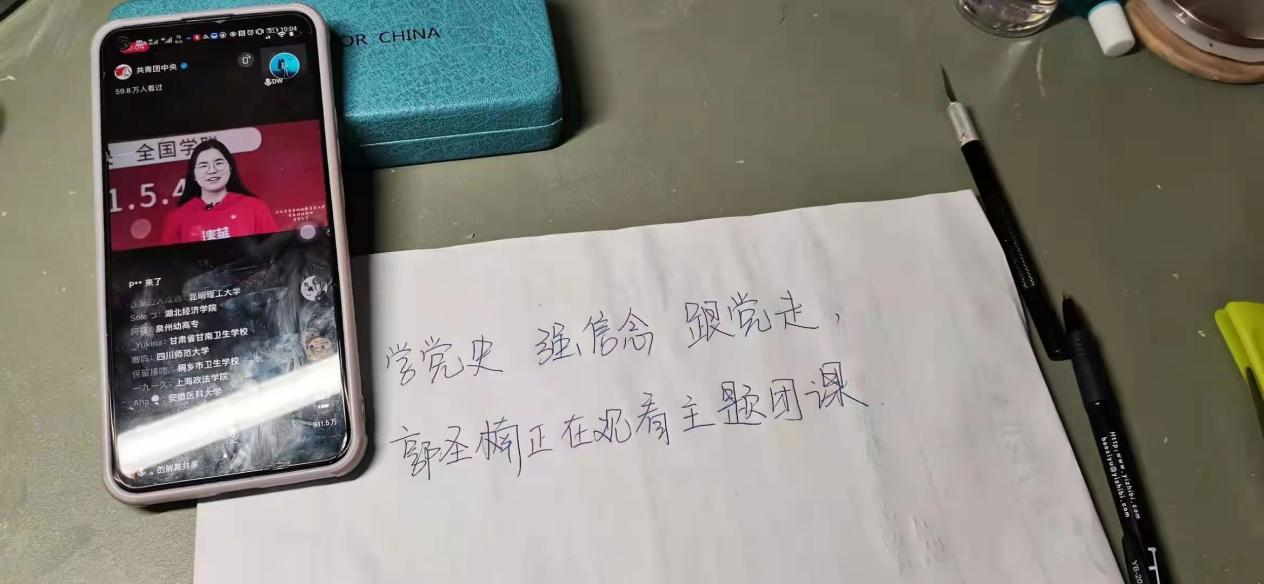 10:04
共青团中央
59.8万人看过
DW
全国学联
1.5.4
清华
p** 来了
昆明理工大学
Solo つ：湖北经济学院
泉州幼高专
_Yukina：甘肃省甘南卫生学校
四川师范大学
保留接吻：桐乡市卫生学校
一九一久：上海政法学院
Aha：安徽医科大学
911.5万
的屏幕共享
OR CHINA
学党史 强信念 跟党走，
郭圣楠正在观看主题团课
Http:www.yizhibi.com
baoxiyu@yizhibi.com